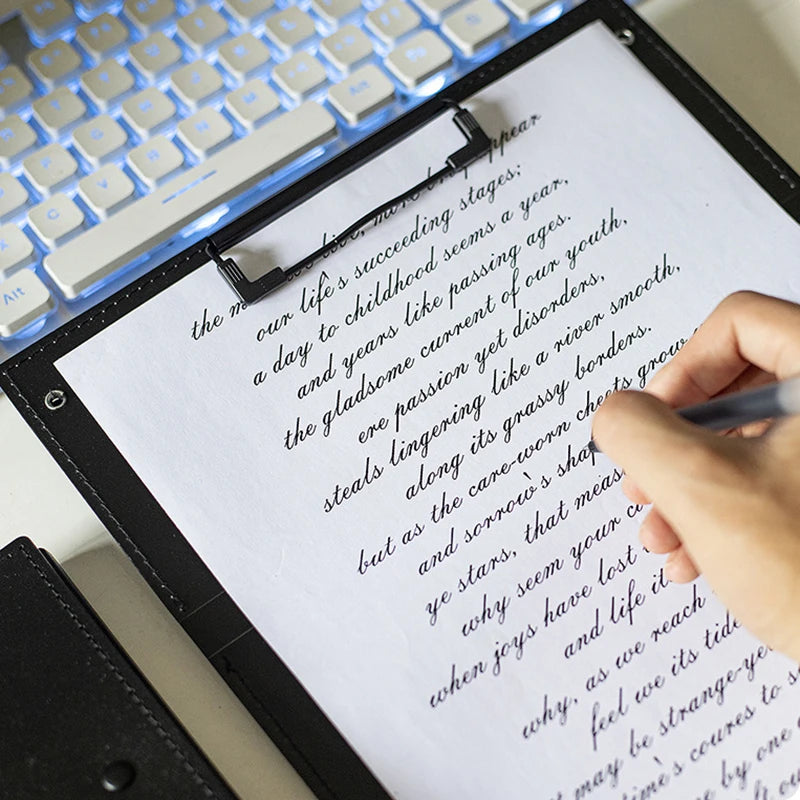 Alt
Alt
the m live, more appear
our life's succeeding stages;
a day to childhood seems a year,
and years like passing ages.
the gladsome current of our youth,
ere passion yet disorders,
steals lingering like a river smooth,
along its grassy borders.
but as the care-worn cheets grow
and sorrow's
ye stars, that
why seem your
when joys have lost
and life
why, as we reach
feel we its
may be
coures to
by one